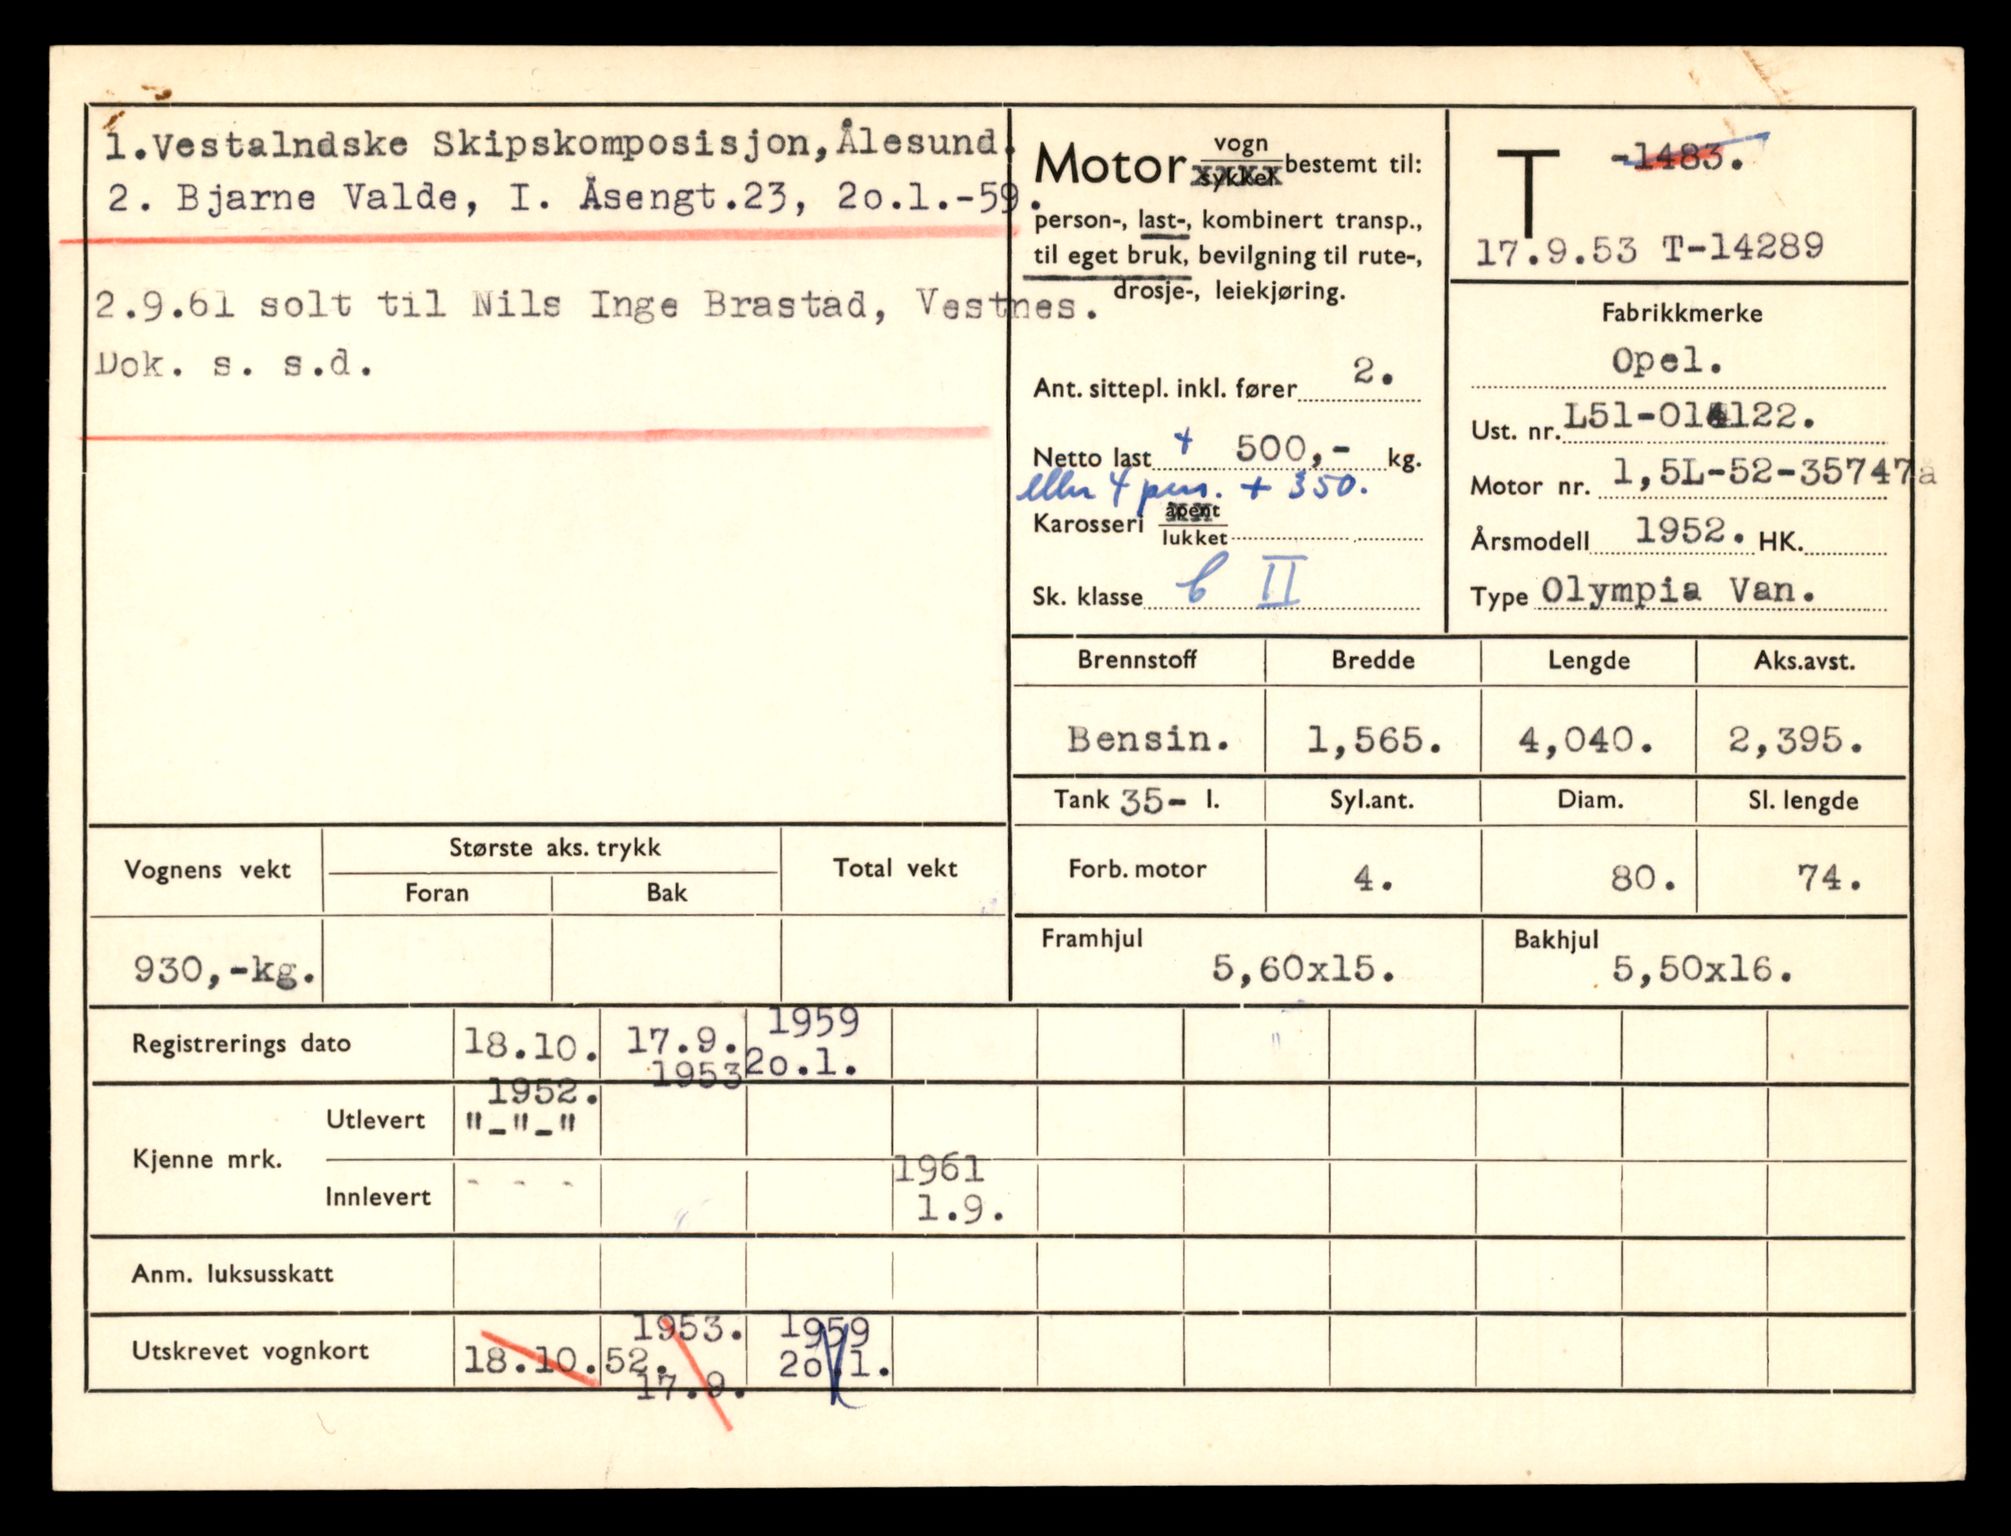 1.Vestalndske Skipskomposisjon,Ålesund.
2. Bjarne Valde, I. Åsengt.23, 2o.1.-59.
2.9.61 solt til Nils Inge Brastad, Vestnes.
Dok. s. s.d.
Motor vogn sykkel bestemt til:
person-, last-, kombinert transp.,
til eget bruk, bevilgning til rute-,
drosje-, leiekjøring.
Ant. sittepl. inkl. fører 2.
Netto last + 500,- kg.
eller 4 pers. + 350.
Karosseri åpent lukket
Sk. klasse b II
T -1483.
17.9.53 T-14289
Fabrikkmerke
Opel.
Ust. nr. L51-014122.
Motor nr. 1,5L-52-35747å
Årsmodell 1952. HK.
Type Olympia Van.
Brennstoff Bredde Lengde Aks.avst.
Bensin. 1,565. 4,040. 2,395.
Tank 35- l. Syl.ant. Diam. Sl. lengde
Forb. motor 4. 80. 74.
Framhjul 5,60x15. Bakhjul 5,50x16.
Vognens vekt Største aks. trykk Total vekt
Foran Bak
930,-kg.
Registrerings dato 18.10. 17.9. 1959
1952. 1953 2o.1.
Kjenne mrk. Utlevert "-"-"
Innlevert - - - 1961
1.9.
Anm. luksusskatt
Utskrevet vognkort 18.10.52. 1953. 1959
17.9. 2o.1.